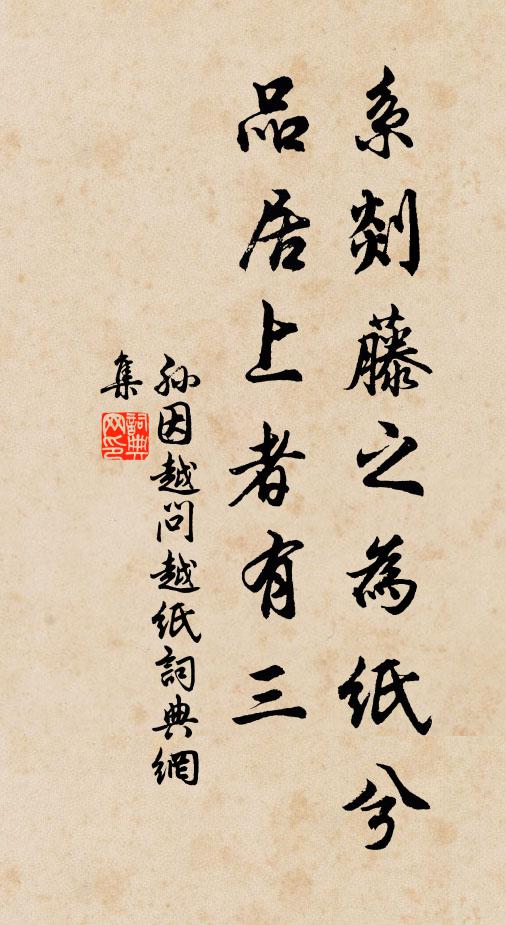 系剡藤之為紙兮
品居上者有三
孫因越問越紙詞典網
集
詞典
网印